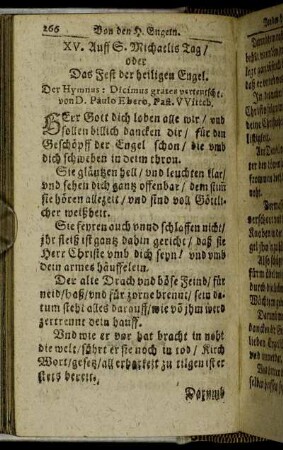 266 Von den H. Engeln.
XV. Auff S. Michaelis Tag/
oder
Das Fest der heiligen Engel.
Der Hymnus: Dicimus grates verteutscht.
von D. Paulo Ebero, Past. VVitteb.
HErr Gott dich loben alle wir/ vnd
sollen billich dancken dir/ für dein
Geschöpff der Engel schon/ die vmb
dich schweben in deim thron.
Sie gläntzen hell/ vnd leuchten klar/
vnd sehen dich gantz offenbar/ dein stim
sie hören allezeit/ vnd sind voll Göttli-
cher weißheit.
Sie feyren auch vnnd schlaffen nicht/
jhr fleiß ist gantz dahin gericht/ daß sie
Herr Christe vmb dich seyn/ vnd vmb
dein armes häuffelein.
Der alte Drach vnd böse Feind/ für
neid/ haß/ vnd für zorne brennt/ sein da-
tum steht alles darauff/ wie võ jhm werd
zertrennt dein hauff.
Vnd wie er vor hat bracht in noht
die welt/ führt er sie noch in tod/ Kirch
Wort/ gesetz/ all erbarkeit zu tilgen ist er
stets bereit.
Darumb